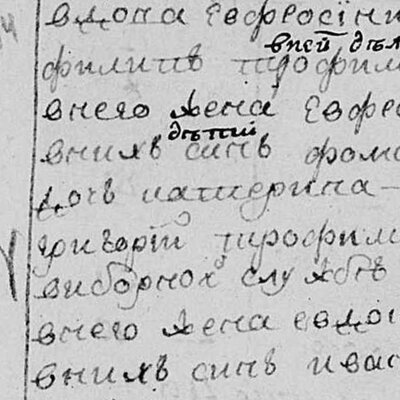 вдова Евфросіни
вней дѣт
филипъ трофим
внего жена Евфро
дѣтии
внихъ синъ фома
дочь катерина
григорій трофим
виборной службѣ
внего жена евдок
внихъ синъ ива